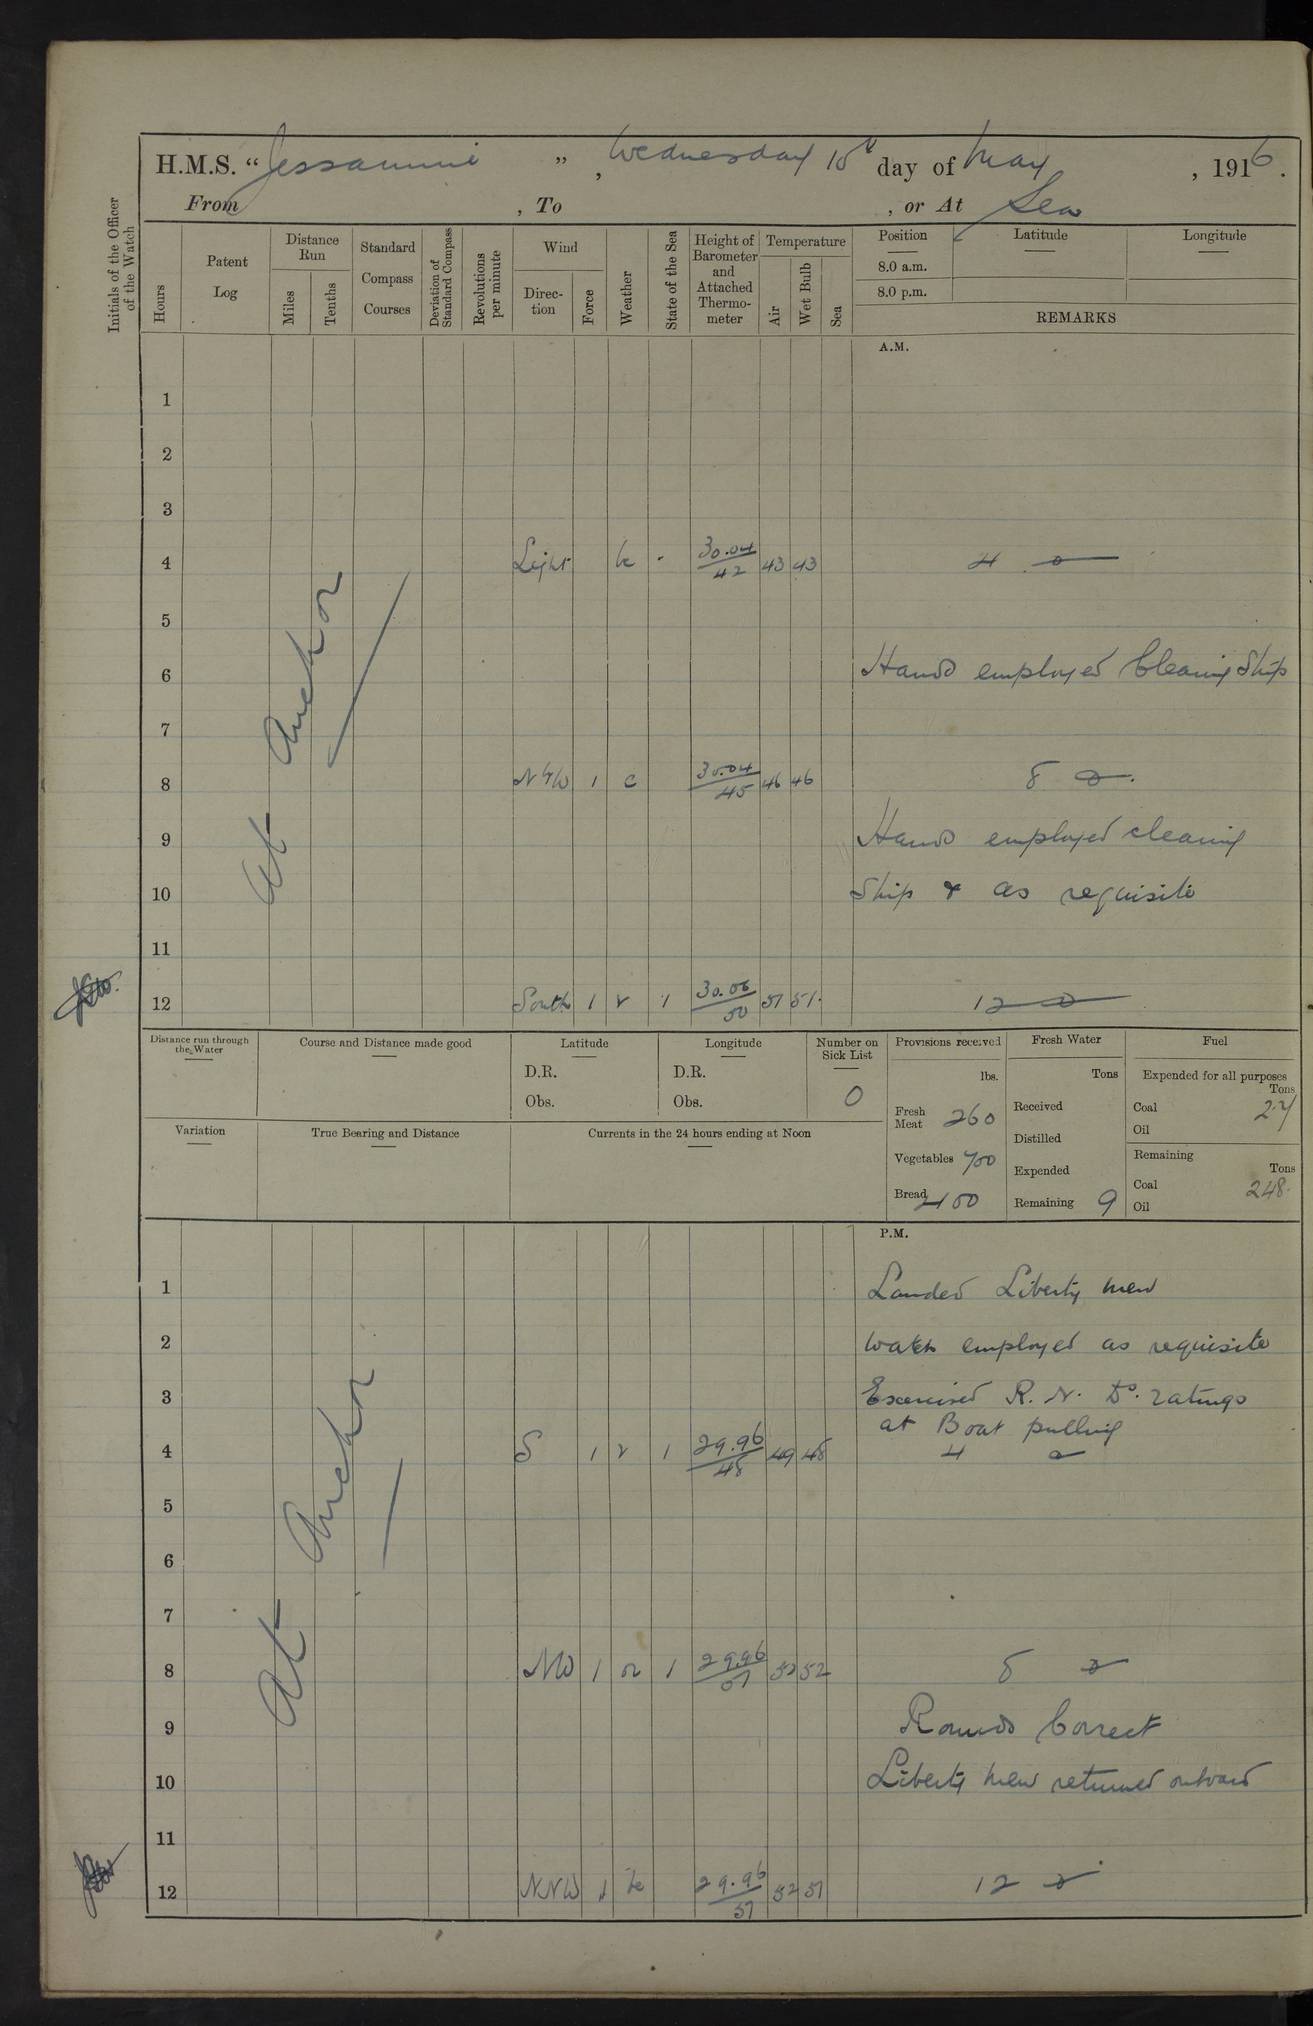 H.M.S. "Jessamine", Wednesday 10th day of May, 1916.
From , To , or At Sea
Initials of the Officer of the Watch
Hours
Patent Log
Distance Run
Miles
Tenths
Standard Compass Courses
Deviation of Standard Compass
Revolutions per minute
Wind
Direc-tion
Force
Weather
State of the Sea
Height of Barometer and Attached Thermo-meter
Temperature
Air
Wet Bulb
Sea
Position
Latitude
Longitude
8.0 a.m.
8.0 p.m.
REMARKS
A.M.
At Anchor
1
2
3
4 Light - 30.04/42 43 43 4
5
6 Hands employed Cleaning Ship
7
8 1 c 30.04/45 46 46 8
9 Hands employed cleaning
10 Ship & as requisite
11
12 South 1 r 1 30.06/50 51 51 12
Distance run through the Water
Course and Distance made good
Latitude
D.R.
Obs.
Longitude
D.R.
Obs.
Number on Sick List
0
Provisions received
lbs.
Fresh Meat 260
Vegetables 700
Bread 400
Fresh Water
Tons
Received
Distilled
Expended
Remaining 9
Fuel
Expended for all purposes
Tons
Coal
Oil
Remaining
Tons
Coal 248.
Oil
Variation
True Bearing and Distance
Currents in the 24 hours ending at Noon
P.M.
At Anchor
1 Landed Liberty men
2 Watch employed as requisite
3 Exercised R. N. Do. ratings
at Boat pulling
4 S 1 r 1 29.96/48 49 48 4
5
6
7
8 NW 1 or 1 29.96/51 52 52 8
9 Rounds Correct
10 Liberty men returned onboard
11
12 NNW 1 bc 29.96/51 52 51 12